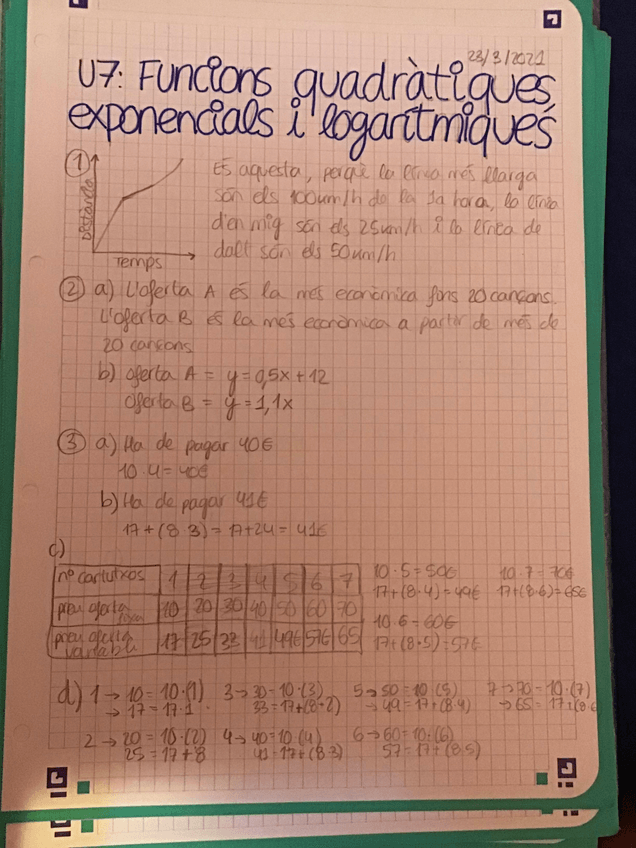 23/3/2021
U7: Funcions quadràtiques,
exponencials i logarítmiques
1
Distància
Temps
És aquesta, perquè la línea més llarga
són els 100km/h de la 1a hora, la línia
d'en mig són els 25km/h i la línea de
dalt són els 50km/h
2 a) L'oferta A és la més econòmica fins 20 cançons.
L'oferta B és la més econòmica a partir de més de
20 cançons
b) oferta A = y=0,5x+12
oferta B = y=1,1x
3 a) Ha de pagar 40€
10·4=40€
b) Ha de pagar 41€
17+(8·3)=17+24=41€
c)
nº cartutxos 1 2 3 4 5 6 7
preu oferta fixa 10 20 30 40 50 60 70
preu oferta variable 17 25 33 41 49€ 57€ 65
10·5=50€
17+(8·4)=49€
10·6=60€
17+(8·5)=57€
10·7=70€
17+(8·6)=65€
d) 1→10=10·(1) 3→30=10·(3) 5→50=10·(5) 7→70=10·(7)
→17=17·1 33=17+(8·2) →49=17+(8·4) →65=17+(8·6
2→20=10·(2) 4→40=10·(4) 6→60=10·(6)
25=17+8 41=17+(8·3) 57=17+(8·5)